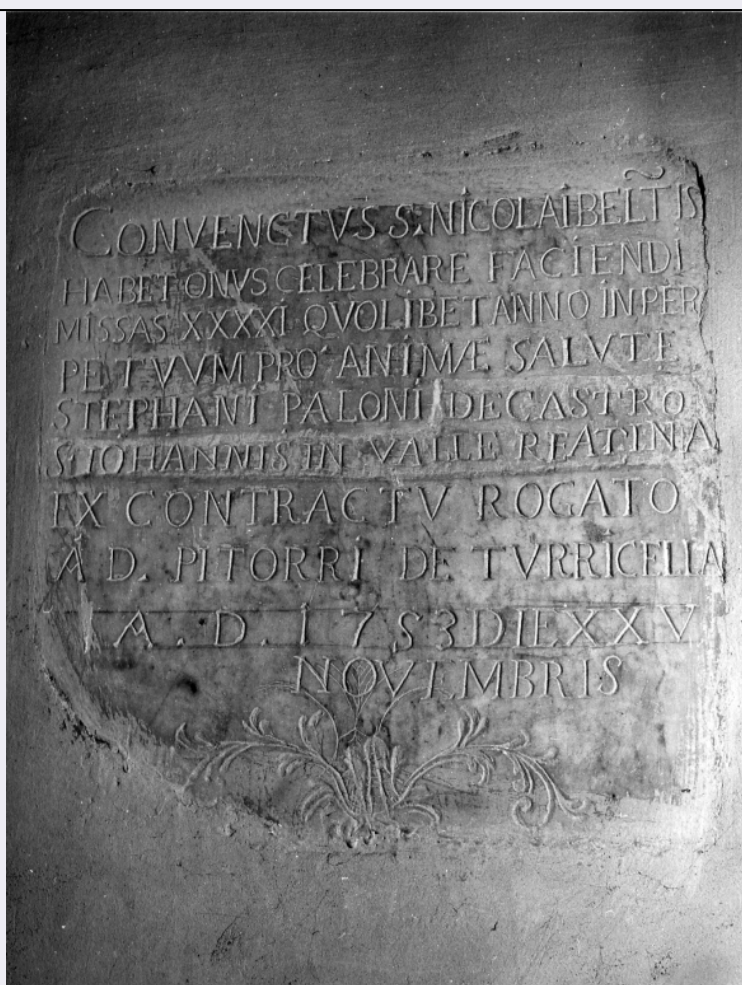 CONVENCTVS S. NICOLAI BELT̃IS
HABET ONVS CELEBRARE FACIENDI
MISSAS XXXXI QVOLIBET ANNO IN PER
PETVVM PRO ANIMÆ SALVTE
STEPHANI PALONI DE CASTRO
S. IOHANNIS IN VALLE REATINA
EX CONTRACTV ROGATO
A D. PITORRI DE TVRRICELLA
A. D. 1753 DIE XXV
NOVEMBRIS